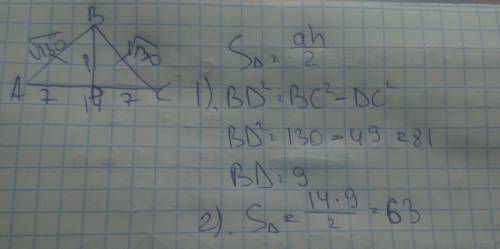 B
√130 √130
A 7 D 7 C
14
S△ = ah/2
1). BD² = BC² - DC²
BD² = 130 - 49 = 81
BD = 9
2). S△ = 14·9/2 = 63